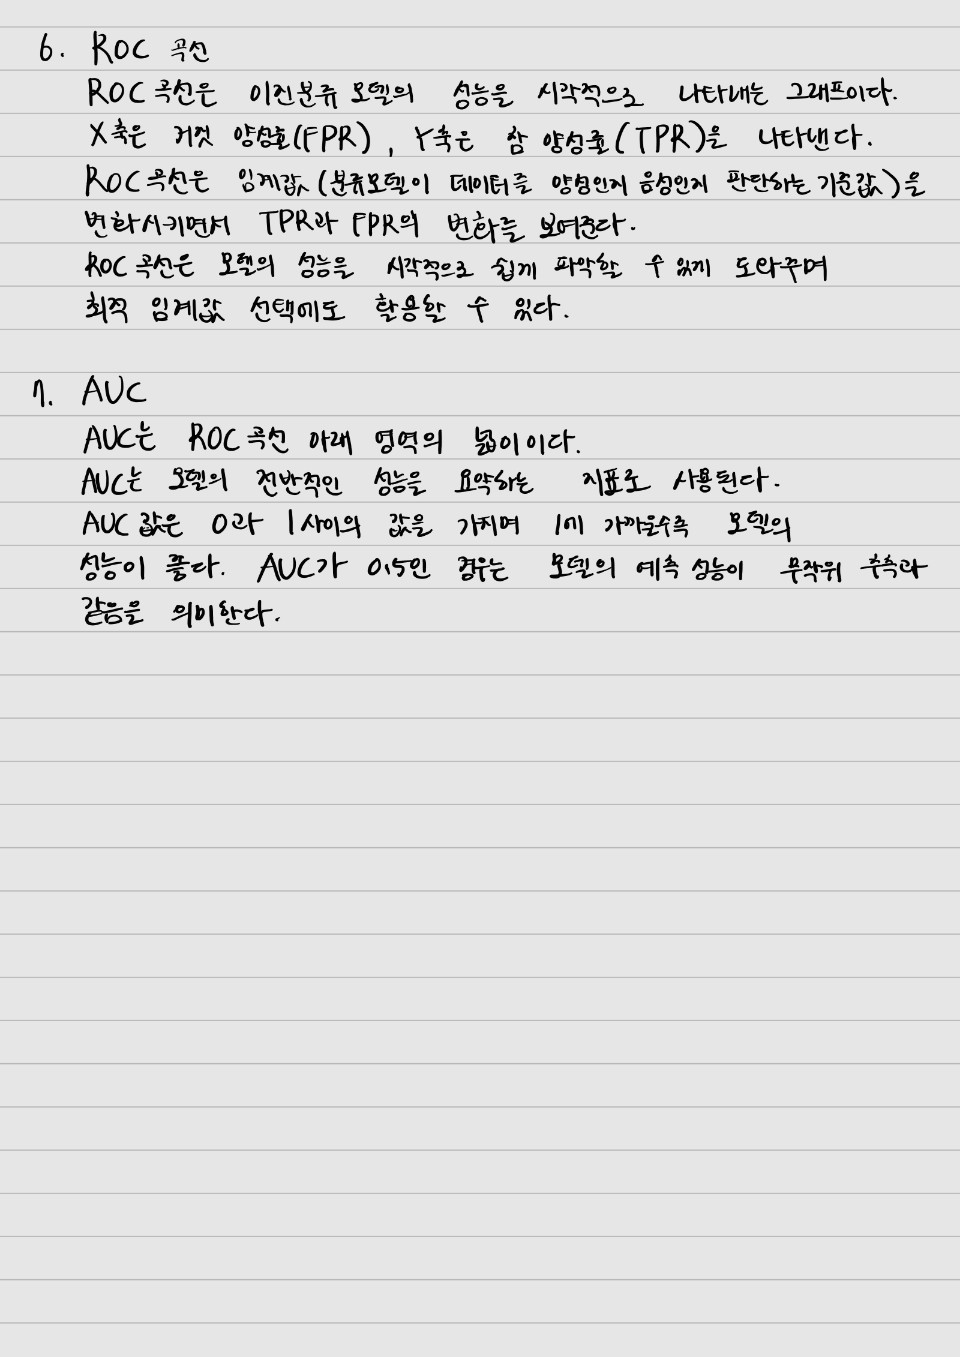 6. ROC 곡선
ROC 곡선은 이진분류 모델의 성능을 시각적으로 나타내는 그래프이다.
X축은 거짓 양성률(FPR), Y축은 참 양성률(TPR)을 나타낸다.
ROC 곡선은 임계값(분류모델이 데이터를 양성인지 음성인지 판단하는 기준값)을
변화시키면서 TPR과 FPR의 변화를 보여준다.
ROC 곡선은 모델의 성능을 시각적으로 쉽게 파악할 수 있게 도와주며
최적 임계값 선택에도 활용할 수 있다.
7. AUC
AUC는 ROC 곡선 아래 영역의 넓이이다.
AUC는 모델의 전반적인 성능을 요약하는 지표로 사용된다.
AUC 값은 0과 1 사이의 값을 가지며 1에 가까울수록 모델의
성능이 좋다. AUC가 0.5인 경우는 모델의 예측 성능이 무작위 추측과
같음을 의미한다.